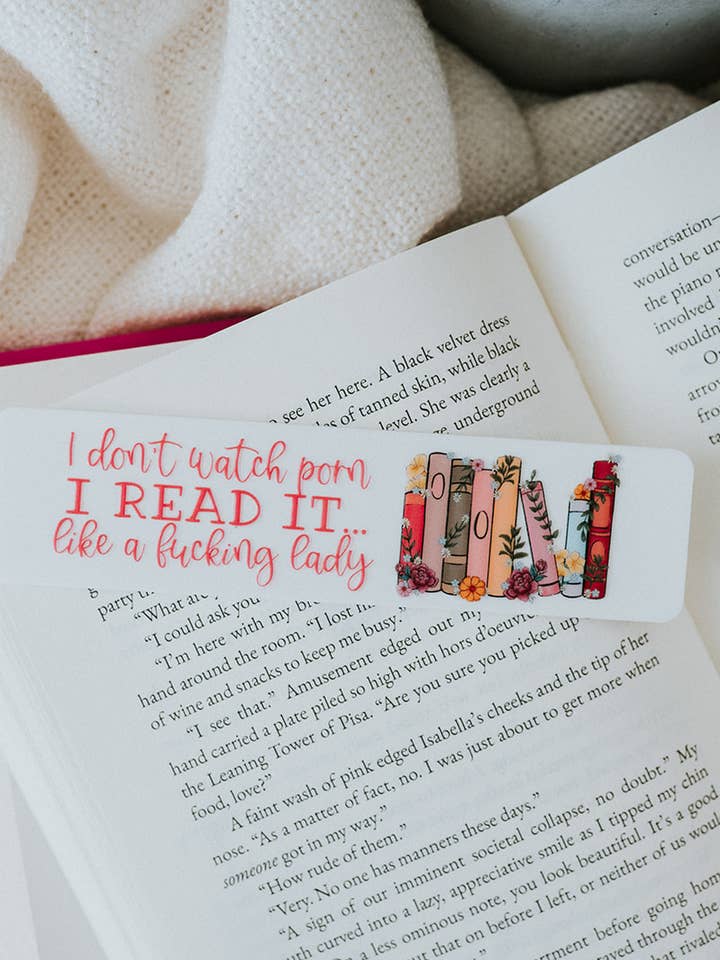 conversation—
would be un
the piano
involved
wouldn'
O
arro
fro
talk
see her here. A black velvet dress
of tanned skin, while black
level. She was clearly a
underground
I don't watch porn
I READ IT...
like a fucking lady
party
"What are
"I could ask you
"I'm here with my br
hand around the room. "I lost
of wine and snacks to keep me busy."
"I see that." Amusement edged out my
hand carried a plate piled so high with hors d'oeuvre
the Leaning Tower of Pisa. "Are you sure you picked up
food, love?"
A faint wash of pink edged Isabella's cheeks and the tip of her
nose. "As a matter of fact, no. I was just about to get more when
someone got in my way."
"How rude of them."
"Very. No one has manners these days."
"A sign of our imminent societal collapse, no doubt." My
uth curved into a lazy, appreciative smile as I tipped my chin
n a less ominous note, you look beautiful. It's a good
out that on before I left, or neither of us would
partment before going hom
ayed through the
that rivaled